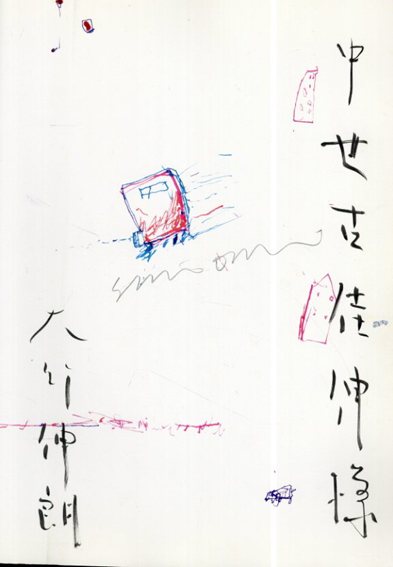 中世古佳伸様
大竹伸朗